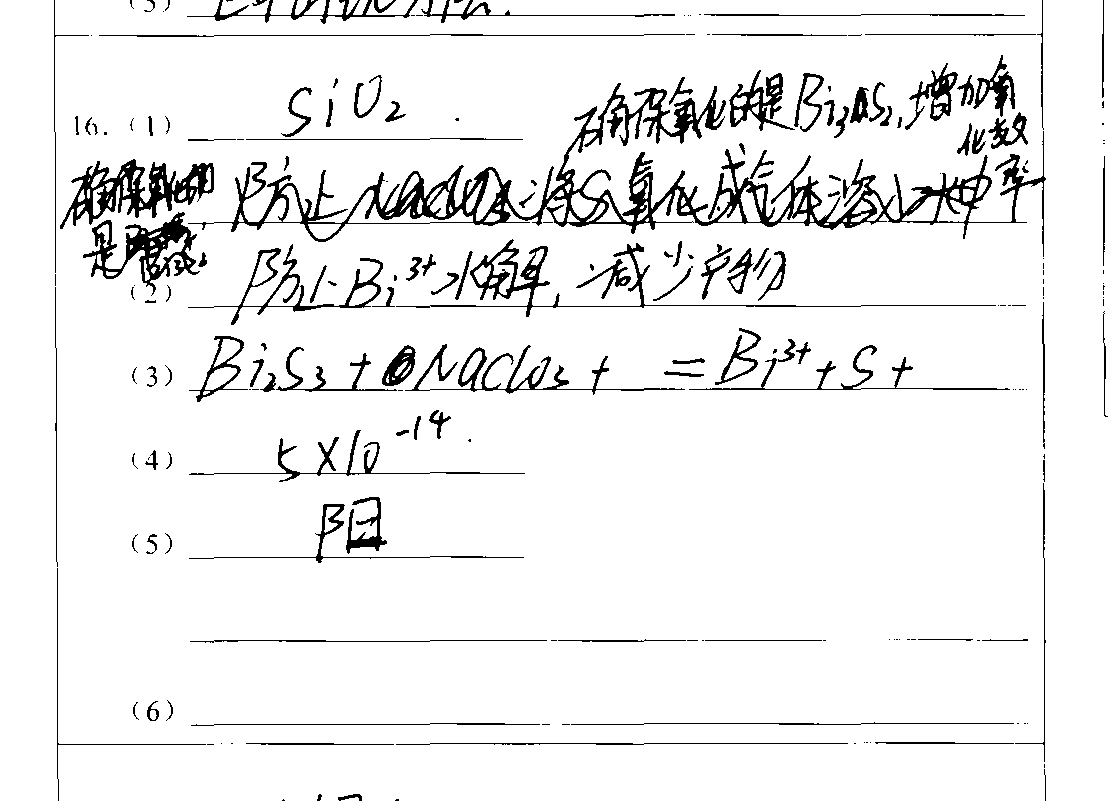 16. (1) SiO₂ .
确保氧化的是Bi₃S₂, 增加氧
化效
率
确保氧化的
是
防止 将S氧化成气体溶
(2) 防止Bi³⁺水解, 减少产物
(3) Bi₂S₃ + NaClO₃ + = Bi³⁺ + S +
(4) 5×10⁻¹⁴ .
(5) 阳
(6)